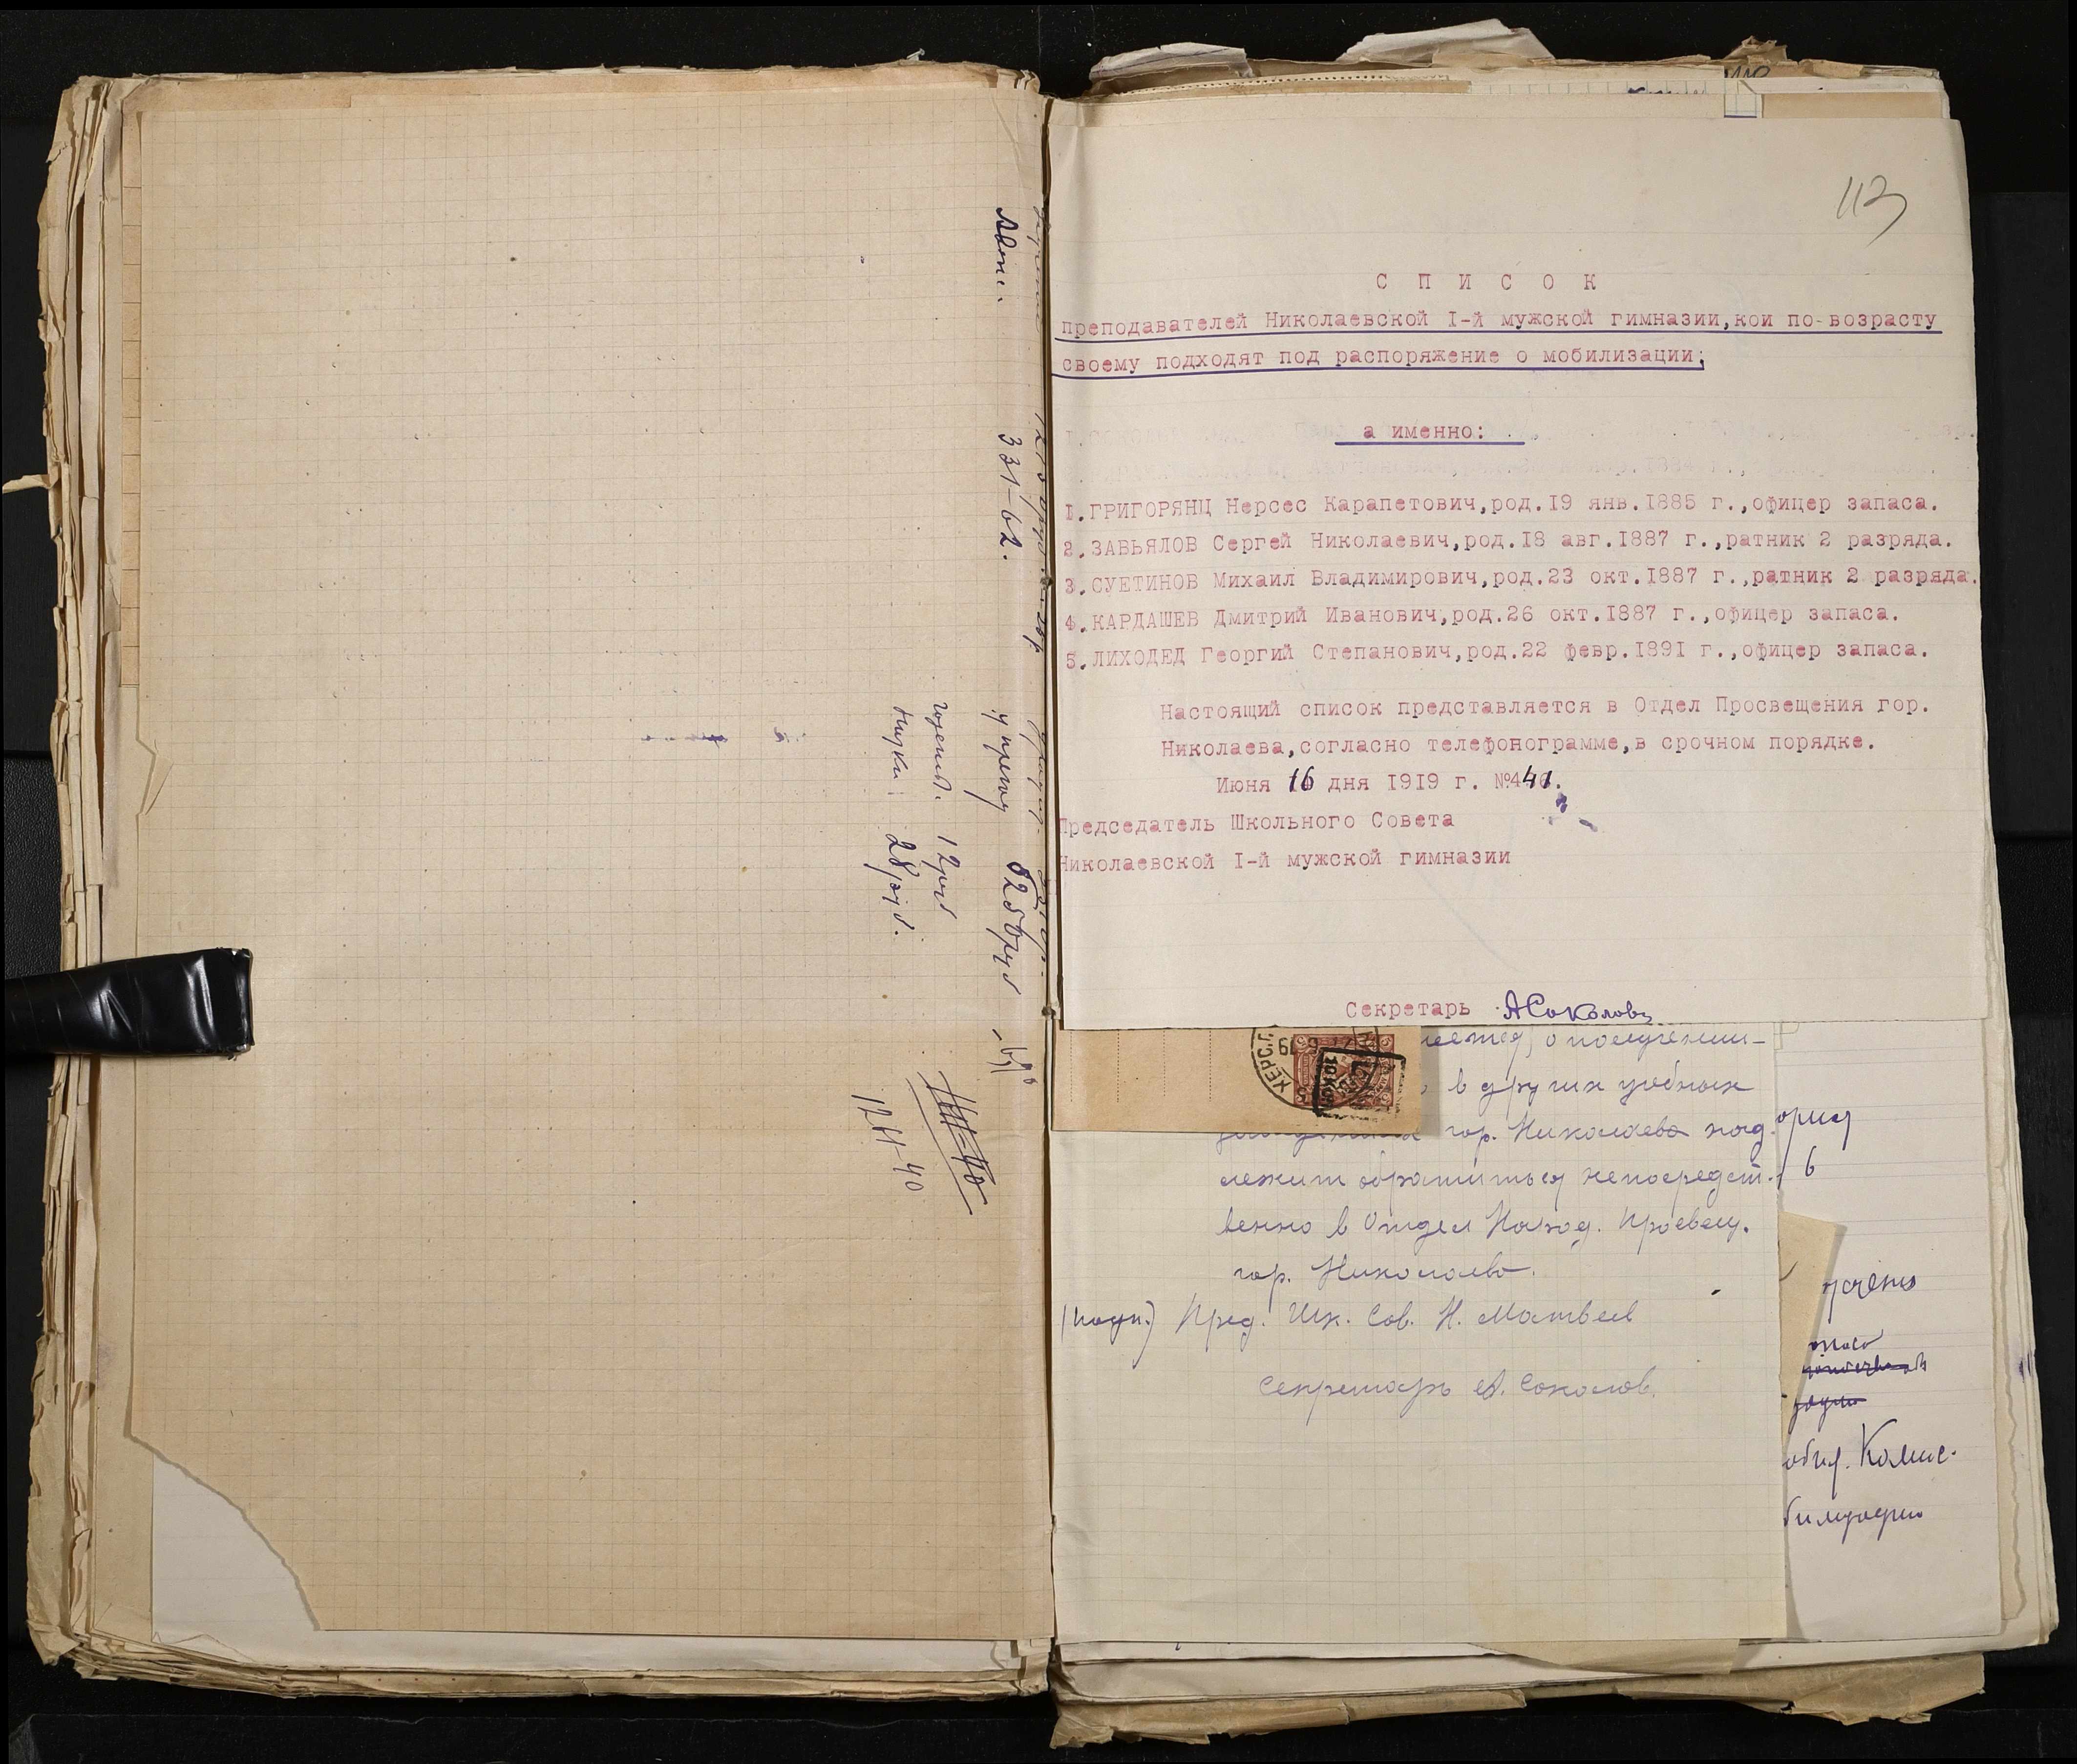 Авони.
331-62.
12 руб
28 руб.
1211-40
113
С П И С О К
преподавателей Николаевской I-й мужской гимназии,кои по-возрасту
своему подходят под распоряжение о мобилизации;
а именно:
1.ГРИГОРЯНЦ Нерсес Карапетович,род.19 янв.1885 г.,офицер запаса.
2.ЗАВЬЯЛОВ Сергей Николаевич,род.18 авг.1887 г.,ратник 2 разряда.
3.СУЕТИНОВ Михаил Владимирович,род.23 окт.1887 г.,ратник 2 разряда.
4.КАРДАШЕВ Дмитрий Иванович,род.26 окт.1887 г.,офицер запаса.
5.ЛИХОДЕД Георгий Степанович,род.22 февр.1891 г.,офицер запаса.
Настоящий список представляется в Отдел Просвещения гор.
Николаева,согласно телефонограмме,в срочном порядке.
Июня 16 дня 1919 г. №441.
Председатель Школьного Совета
Николаевской I-й мужской гимназии
Секретарь АСоколовъ
ХЕРС.Г.
10 коп
о получении
в других учебных
гор. Николаева над-
лежит обратиться непосредст-
венно в Отдел Народ. Просвещ.
гор. Николаева.
(подп.) Пред. Шк. Сов. Н. Матвеев
Секретарь А. Соколов.
в
Комис.